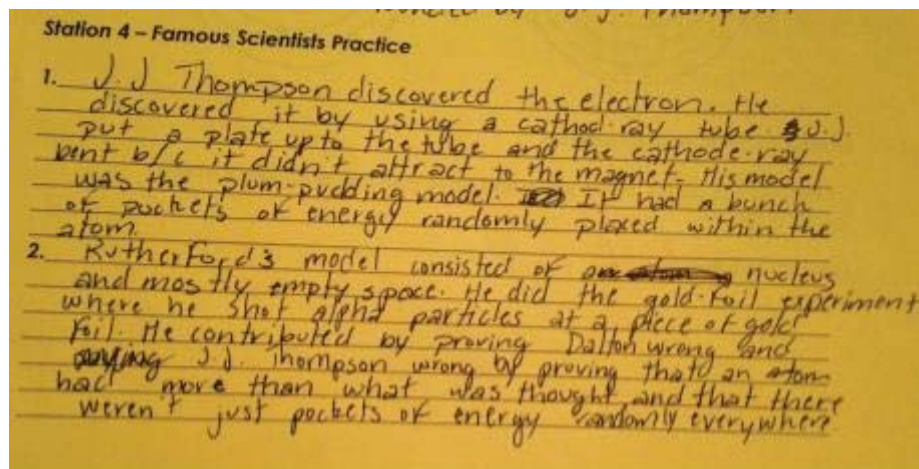 Station 4 – Famous Scientists Practice
1. J.J Thompson discovered the electron. He
discovered it by using a cathod ray tube. J.J.
put a plate up to the tube and the cathode-ray
bent b/c it didn't attract to the magnet. His model
was the plum-pudding model. It had a bunch
of pockets of energy randomly placed within the
atom.
2. Rutherford's model consisted of nucleus
and mostly empty space. He did the gold-foil experiment
where he shot alpha particles at a piece of gold
foil. He contributed by proving Dalton wrong and
J.J. Thompson wrong by proving that an atom
had more than what was thought and that there
weren't just pockets of energy randomly everywhere